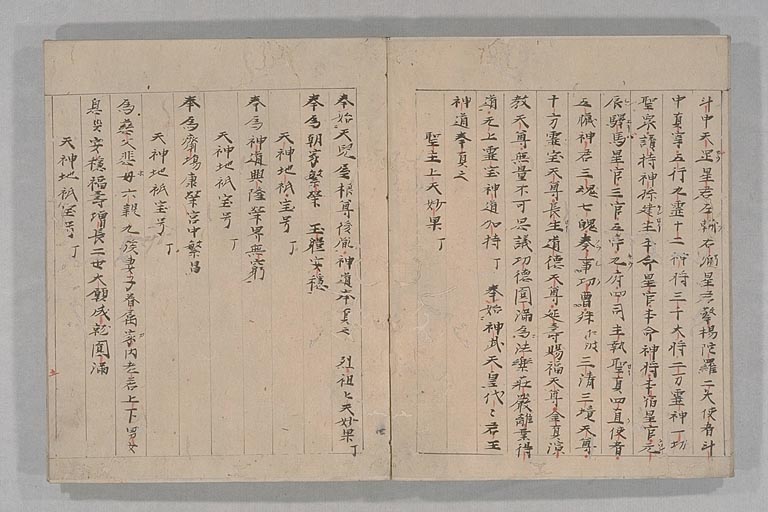 斗中天罡星君左輔右弼星君擎楊陀羅二大使者斗
中真宰五行之霊十二神将三十六将二万霊神一切
聖衆請持神徐建主本命星官本命神将本宿星官元
辰驛馬星官三官五帝之府四司主執聖真四直使者
五臓神君三魂七魄奉事功曹 三清三境天尊
十方霊宝天尊長生道徳天尊延寿賜福天尊全真演
教天尊無量不可思議功徳圓満為法樂荘厳離業得
道之上霊宝神道加持丁 奉始神武天皇代々君王
神道奉真之
聖主上天妙果丁
奉始天児屋根尊後胤神道奉真之 烈祖上天妙果丁
奉為朝家繁榮 玉體安穏
天神地祇宝号丁
奉為神道興隆榮昇無窮
天神地祇宝号丁
奉為齋場康榮宮中繁昌
天神地祇宝号丁
為慈父悲母六親九族妻子眷属家内老若上下男女
息災安穏福壽増長二世大願成就圓満
天神地祇宝号丁